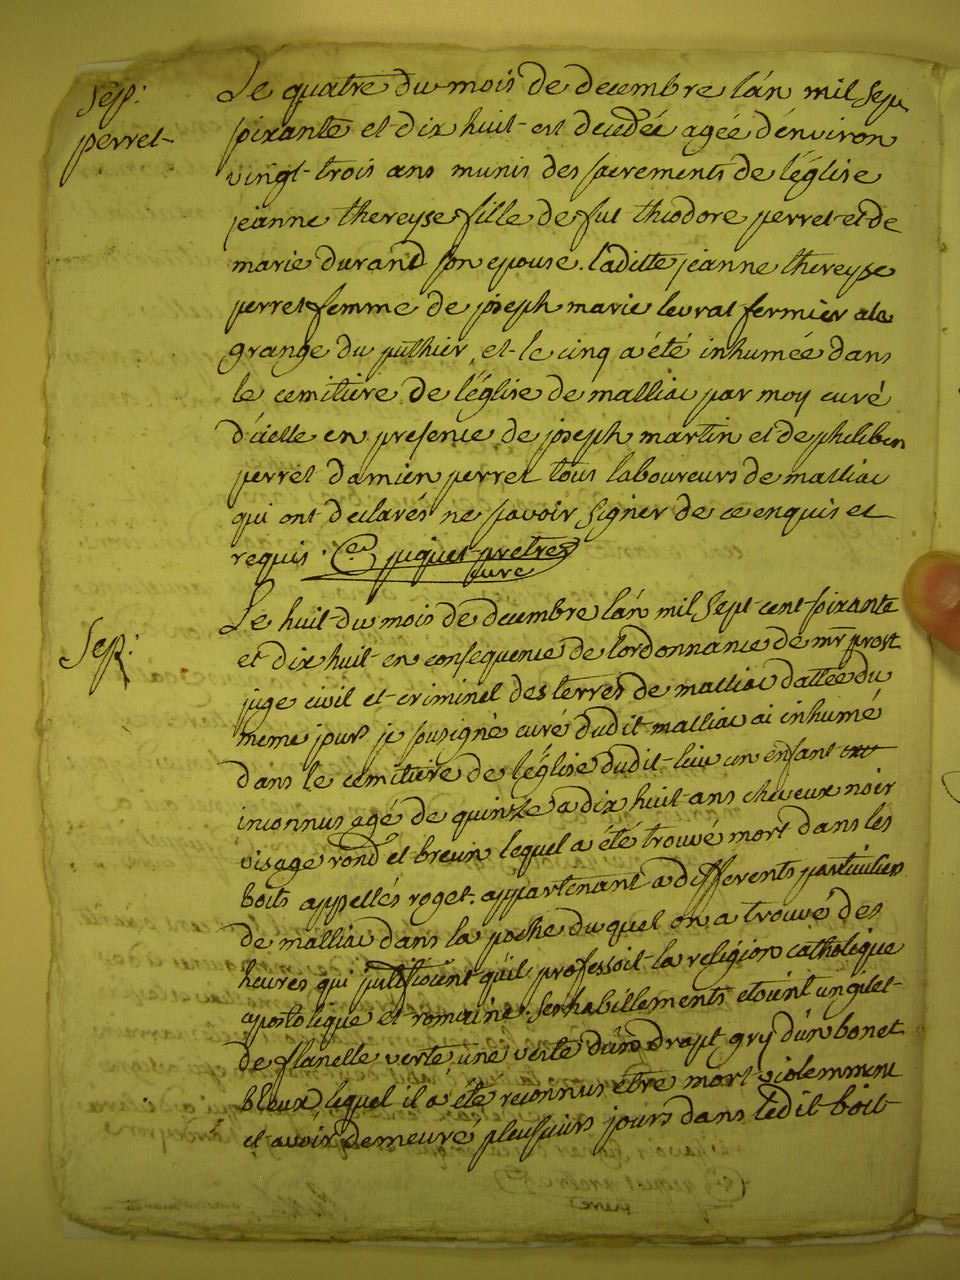 Sep:
perret
Le quatre du mois de decembre l'án mil sept
soixante et dix huit est decedée agée d'environ
vingt-trois ans munis des sacrements de l'église
jeanne thereyse fille de fut théodore perret et de
marie durand son epouse. laditte jeanne thereyse
perret femme de joseph marie levrat fermier a la
grange du puthier, et le cinq a été inhumée dans
le cemitiere de l'église de malliac par moy curé
d'icelle en presence de joseph martin et de philibert
perret damien perret tous laboureurs de malliac
qui ont declarés ne savoir signer de ce enquis et
requis. puquet pretre
curé
Sep:
Le huit du mois de decembre l'án mil sept-cent-soixante
et dix huit en consequence de l'ordonnance de mr prost
juge civil et criminel des terres de malliac dattée du
meme jour je sousigné curé dudit malliac ai inhumé
dans le cemitiére de l'église dudit-lieu un enfant
inconnus agé de quinze a dix huit ans cheveux noir
visage rond et breun lequel a été trouvé mort dans les
boits appellés roget. appartenant a differents particulier
de malliac dans la poche du quel on a trouvé des
heures qui justificient qu'il professoit la religion catholique
apostolique et romaine. ses habillements etoint un gilet
de flanelle verte, une veste d'un drapt gry d'un bonet
bleux, lequel il a été reconnus etre mort violemment
et avoir demeuré pleusiurs jours dans ledit boit